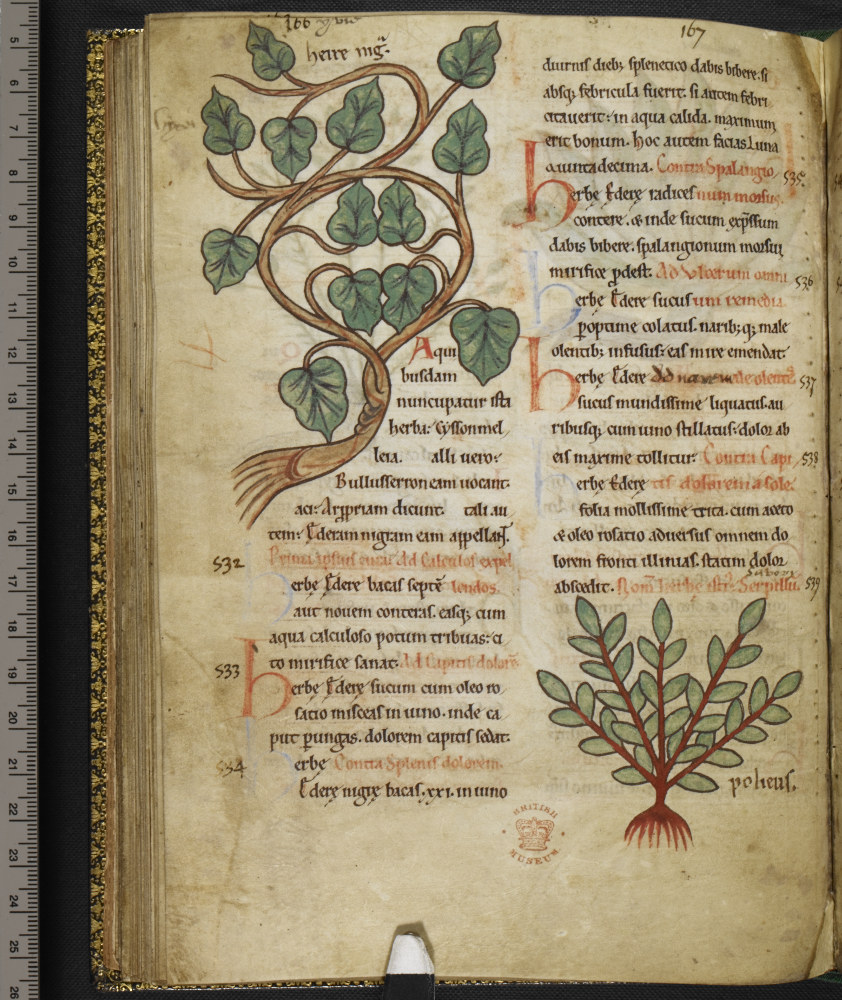 166
167
herre nig̃
A qui
busdam
nuncupatur ista
herba: Cyssonmel
leia. alli uero:
Bullusserroneam uocant.
aci: Arypriam dicunt. tali au
tem: Ederam nigram eam appellant.
532
Ad Calculos expel
erbe Edere bacas septē lendos.
aut nouem conteras. easq; cum
aqua calculoso potum tribuas: ci
to mirifice sanat. Ad Capitis dolorē
533
Herbe Edere sucum cum oleo ro
satio misceas in uino. inde ca
put pungas. dolorem capitis sedat:
534
erbe Contra Splenis dolorem.
Edere nigre bacas .xxi. in uino
diurnis dieb; splenetico dabis bibere. si
absq; febricula fuerit: si autem febri
citauerit: in aqua calida. maximum
erit bonum. hoc autem facias Luna
quintadecima. Contra Spalangio
535
Herbe Edere radices num morsus.
contere. & inde sucum exp̄ssum
dabis bibere. spalangionum morsui
mirifice pdest. Ad Vlcerum
536
erbe Edere sucus uini remedia.
poptime colatus. narib; q; male
olentib; infusus: eas mire emendat:
537
Herbe Edere
sucus mundissime liquatus. au
ribusq; cum uino stillatus: dolor ab
eis maxime tollitur: Contra Capi
538
erbe Edere tis dolorem a sole.
folia mollissime trita. cum aceto
& oleo rosatio aduersus omnem do
lorem fronti illinias. statim dolor
abscedit. Nom̄ herbe Serpillū.
539
BRITISH
MUSEUM